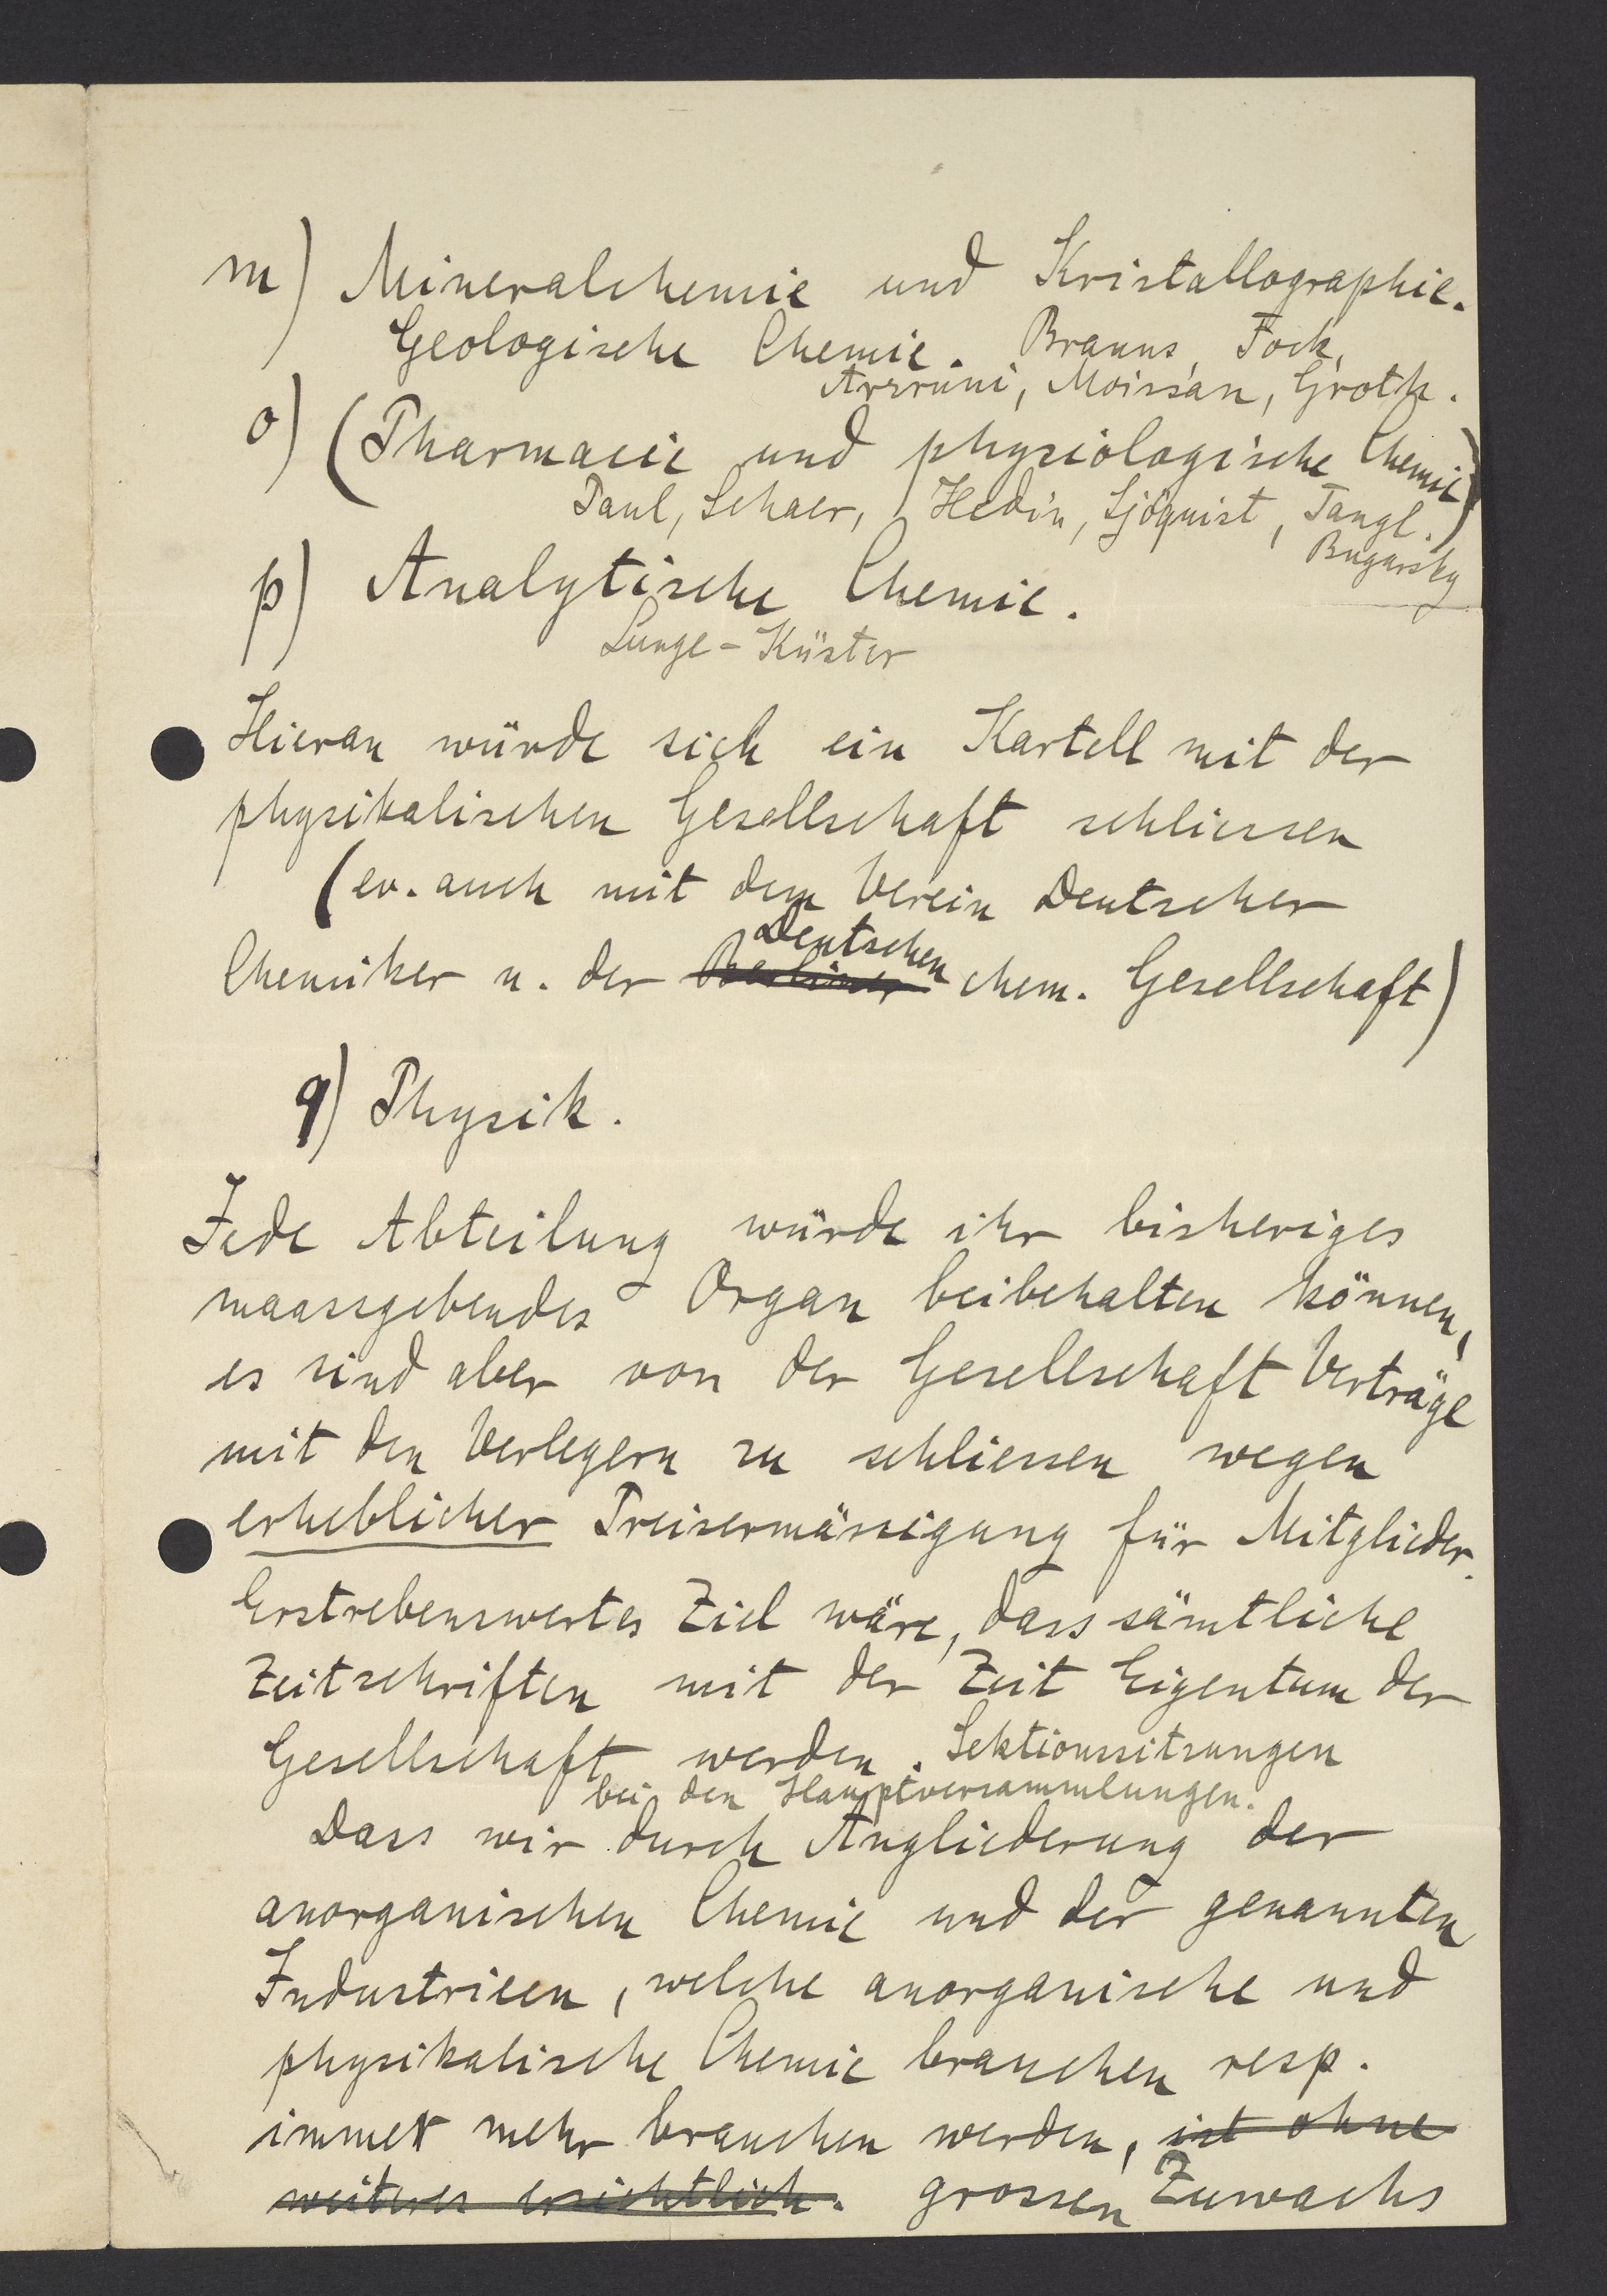 m) Mineralchemie und Kristallographie.
Geologische Chemie. Brauns, Fock,
Arzruni, Moissan, Groth.
o) (Pharmacie und physiologische Chemie)
Paul, Schaer, Hedin, Sjöquist, Tangl.)
Bugarsky
p) Analytische Chemie.
Lunge-Küster
Hieran würde sich ein Kartell mit der
physikalischen Gesellschaft schliessen
(ev. auch mit dem Verein Deutscher
Deutschen
Chemiker u. der Berliner chem. Gesellschaft)
q) Physik.
Jede Abteilung würde ihr bisheriges
maassgebendes Organ beibehalten können,
es sind aber von der Gesellschaft Verträge
mit den Verlegern zu schliessen wegen
erheblicher Preisermässigung für Mitglieder.
Erstrebenswertes Ziel wäre, dass sämtliche
Zeitschriften mit der Zeit Eigentum der
Gesellschaft werden. Sektionssitzungen
bei den Hauptversammlungen.
Dass wir durch Angliederung der
anorganischen Chemie und der genannten
Industrieen, welche anorganische und
physikalische Chemie brauchen resp.
immer mehr brauchen werden, ist ohne
weiteres ersichtlich. grossen Zuwachs